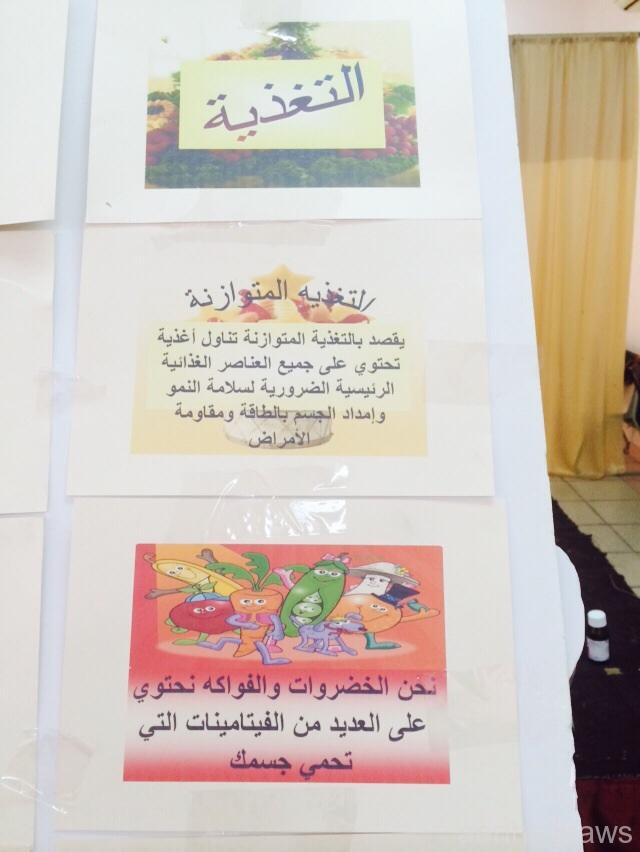 التغذية
التغذيه المتوازنة
يقصد بالتغذية المتوازنة تناول أغذية
تحتوي على جميع العناصر الغذائية
الرئيسية الضرورية لسلامة النمو
وإمداد الجسم بالطاقة ومقاومة
الأمراض
نحن الخضروات والفواكه نحتوي
على العديد من الفيتامينات التي
تحمي جسمك